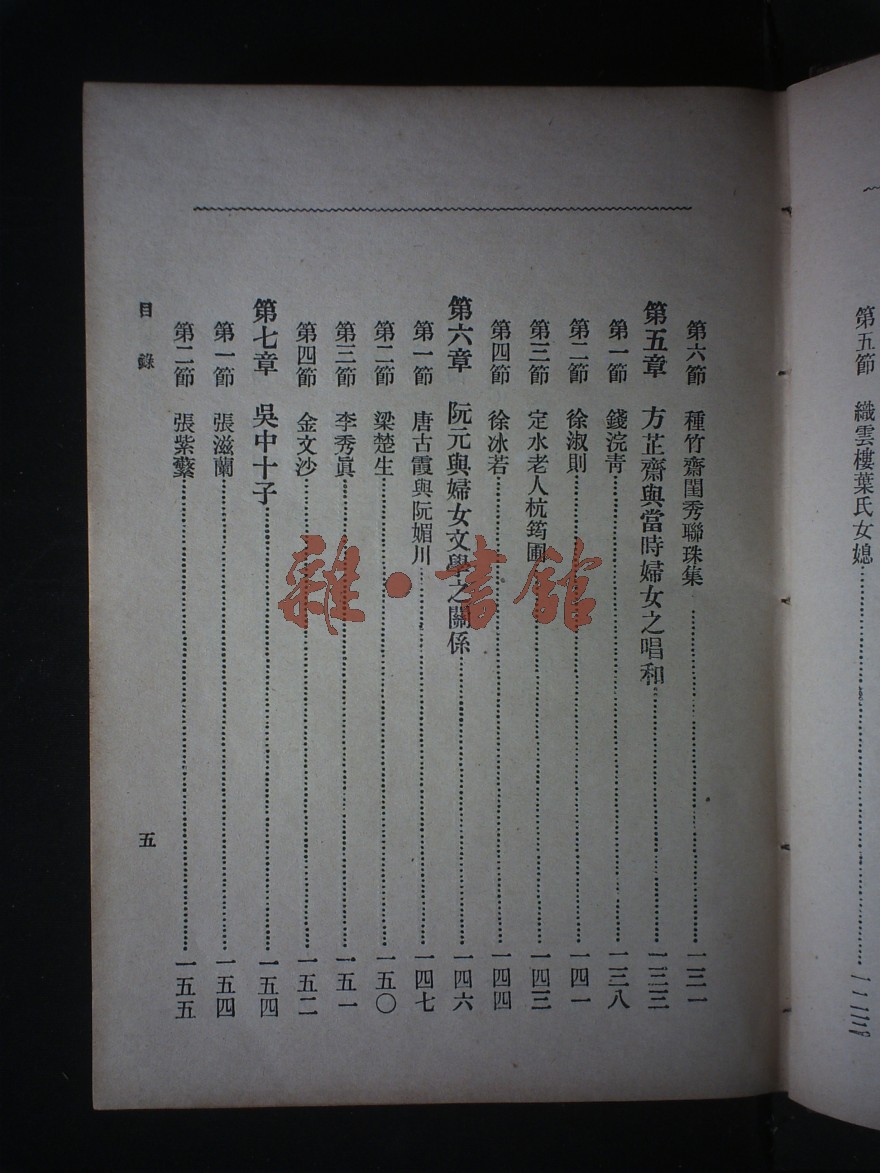 第五節　織雲樓葉氏女媳………一二三
第六節　種竹齋閨秀聯珠集………一三一
第五章　方芷齋與當時婦女之唱和………一三三
第一節　錢浣靑………一三八
第二節　徐淑則………一四一
第三節　定水老人杭筠圃………一四三
第四節　徐冰若………一四四
第六章　阮元與婦女文學之關係………一四六
第一節　唐古霞與阮媚川………一四七
第二節　梁楚生………一五〇
第三節　李秀眞………一五一
第四節　金文沙………一五二
第七章　吳中十子………一五四
第一節　張滋蘭………一五四
第二節　張紫蘩………一五五
目錄
五
雜·書館